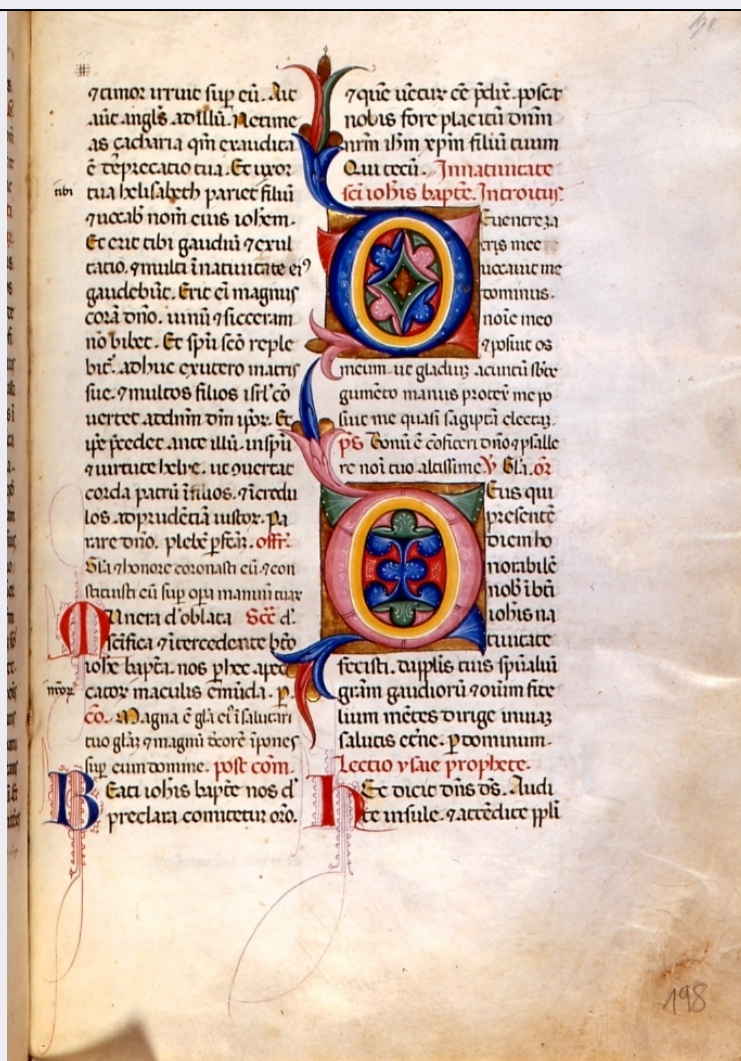 198
⁊ timor irruit sup eū. Ait
aūt angls ad illū. Ne time
as çacharia qm exaudita
ē dep̄catio tua. Et uxor
tibi
tua helisabeth pariet filiū
⁊ uocab nom̄ eius ioh̄em.
Et erit tibi gaudiū ⁊ exul
tatio. ⁊ multi ī natiuitate ei⁹
gaudebūt. Erit ei magnus
corā dn̄o. uinū ⁊ siceram
nō bibet. Et sp̄u scō reple
bit. adhuc ex utero matris
sue. ⁊ multos filios isrl cō
uertet ad dnm dm ip̄oꝝ. Et
ip̄e p̄cedet ante illū. in sp̄u
⁊ uirtute helye. ut ɔuertat
corda patrū ī filios. ⁊ īcredu
los. ad prudētiā iustoꝝ. Pa
rare dn̄o. plebē pfcāꝫ. offr̄.
Gl̄a ⁊ honore coronasti eū. ⁊ con
stituisti eū sup opa manuū tuaꝝ
Munera d' oblata Scc̄ d'.
scifica ⁊ ītercedente bt̄o
ioh̄e bapt̄a. nos p hec a pec
nr̄oꝝ
catoꝝ maculis emūda. p.
cō. Magna ē gl̄a ei' ī salutari
tuo gl̄aꝫ ⁊ magnū decorē īpones
sup eum domine. post com̄.
Beati ioh̄is bapt̄e nos d'
preclara comitetur or̄o.
⁊ que uētur ēē p̄dix̄. poscat
nobis fore placitū dnm̄
nr̄m ih̄m xp̄m filiū tuum
Qui tecū. In natiuitate
sc̄i ioh̄is bapt̄e. Introitus.
De uentre ma
tris mee
uocauit me
dominus.
noīe meo
⁊ posuit os
meum. ut gladiuꝫ acutū sb̄te
gumēto manus protex̄ me po
suit me quasi sagiptā electaꝫ.
ps̄ Bonū ē cōfiteri dn̄o ⁊ psalle
re noī tuo altissime. V̄ Gl̄a. or̄
Deus qui
presentē
diem ho
norabilē
nob̄ ī bt̄i
ioh̄is na
tiuitate
fecisti. da pplis tuis sp̄ualiū
gr̄am gaudioꝝ ⁊ oīum fide
lium mētes dirige in uiaꝫ
salutis et̄ne. p dominum.
Lectio ysaie prophete.
Hec dicit dn̄s ds̄. Audi
te insule. ⁊ attēdite ppl̄i
198